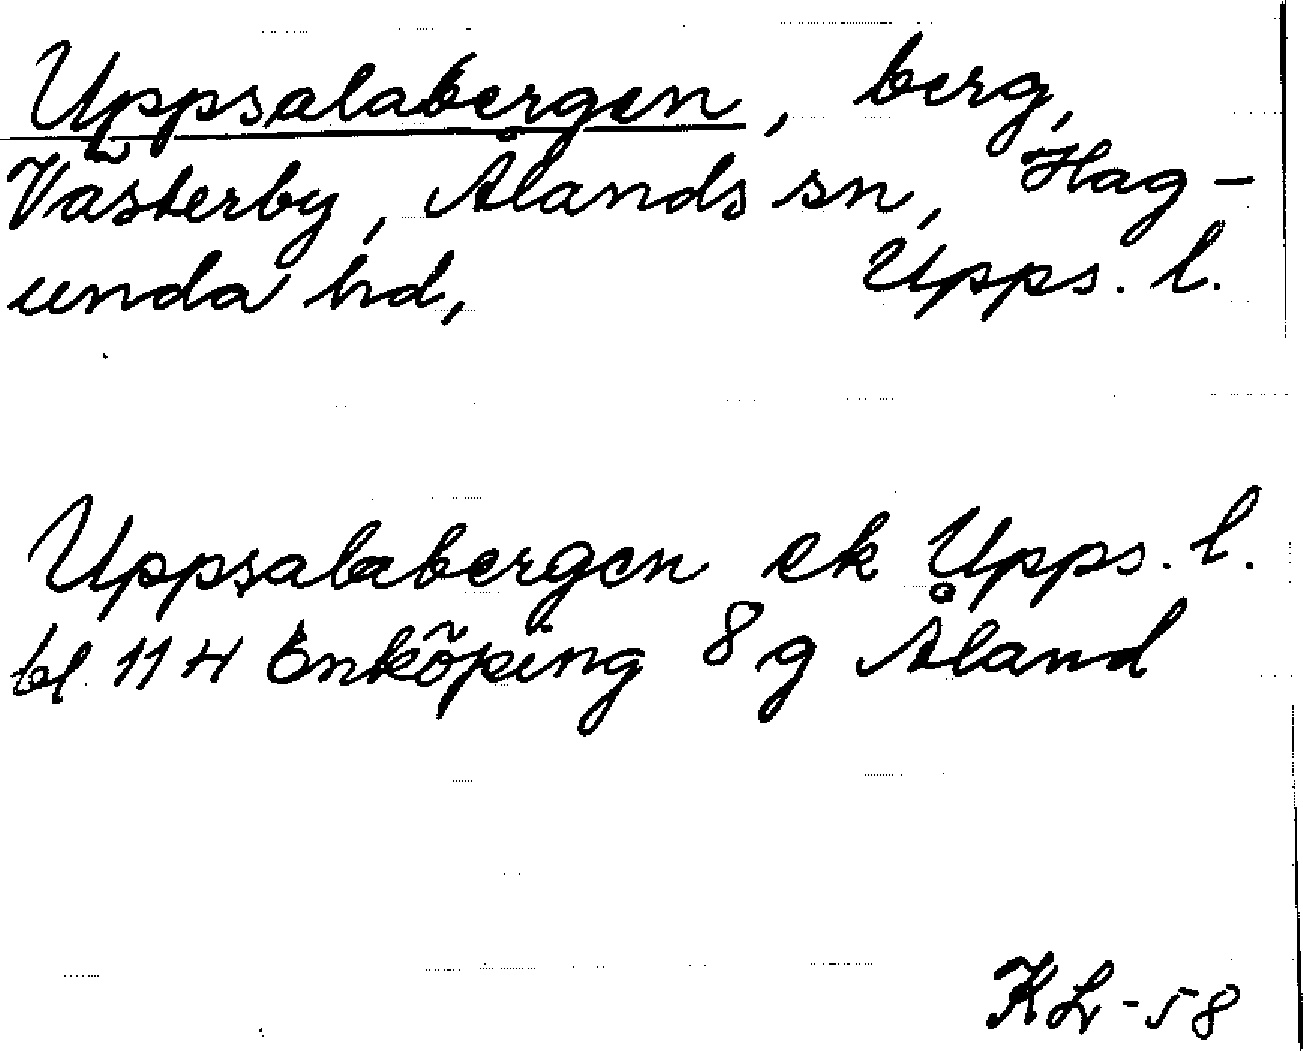 Uppsalabergen, berg,
Västerby, Ålands sn, Hag-
unda hd, Upps. l.
Uppsalabergen ek Upps. l.
bl 114 Enköping 8g Åland
KL-58